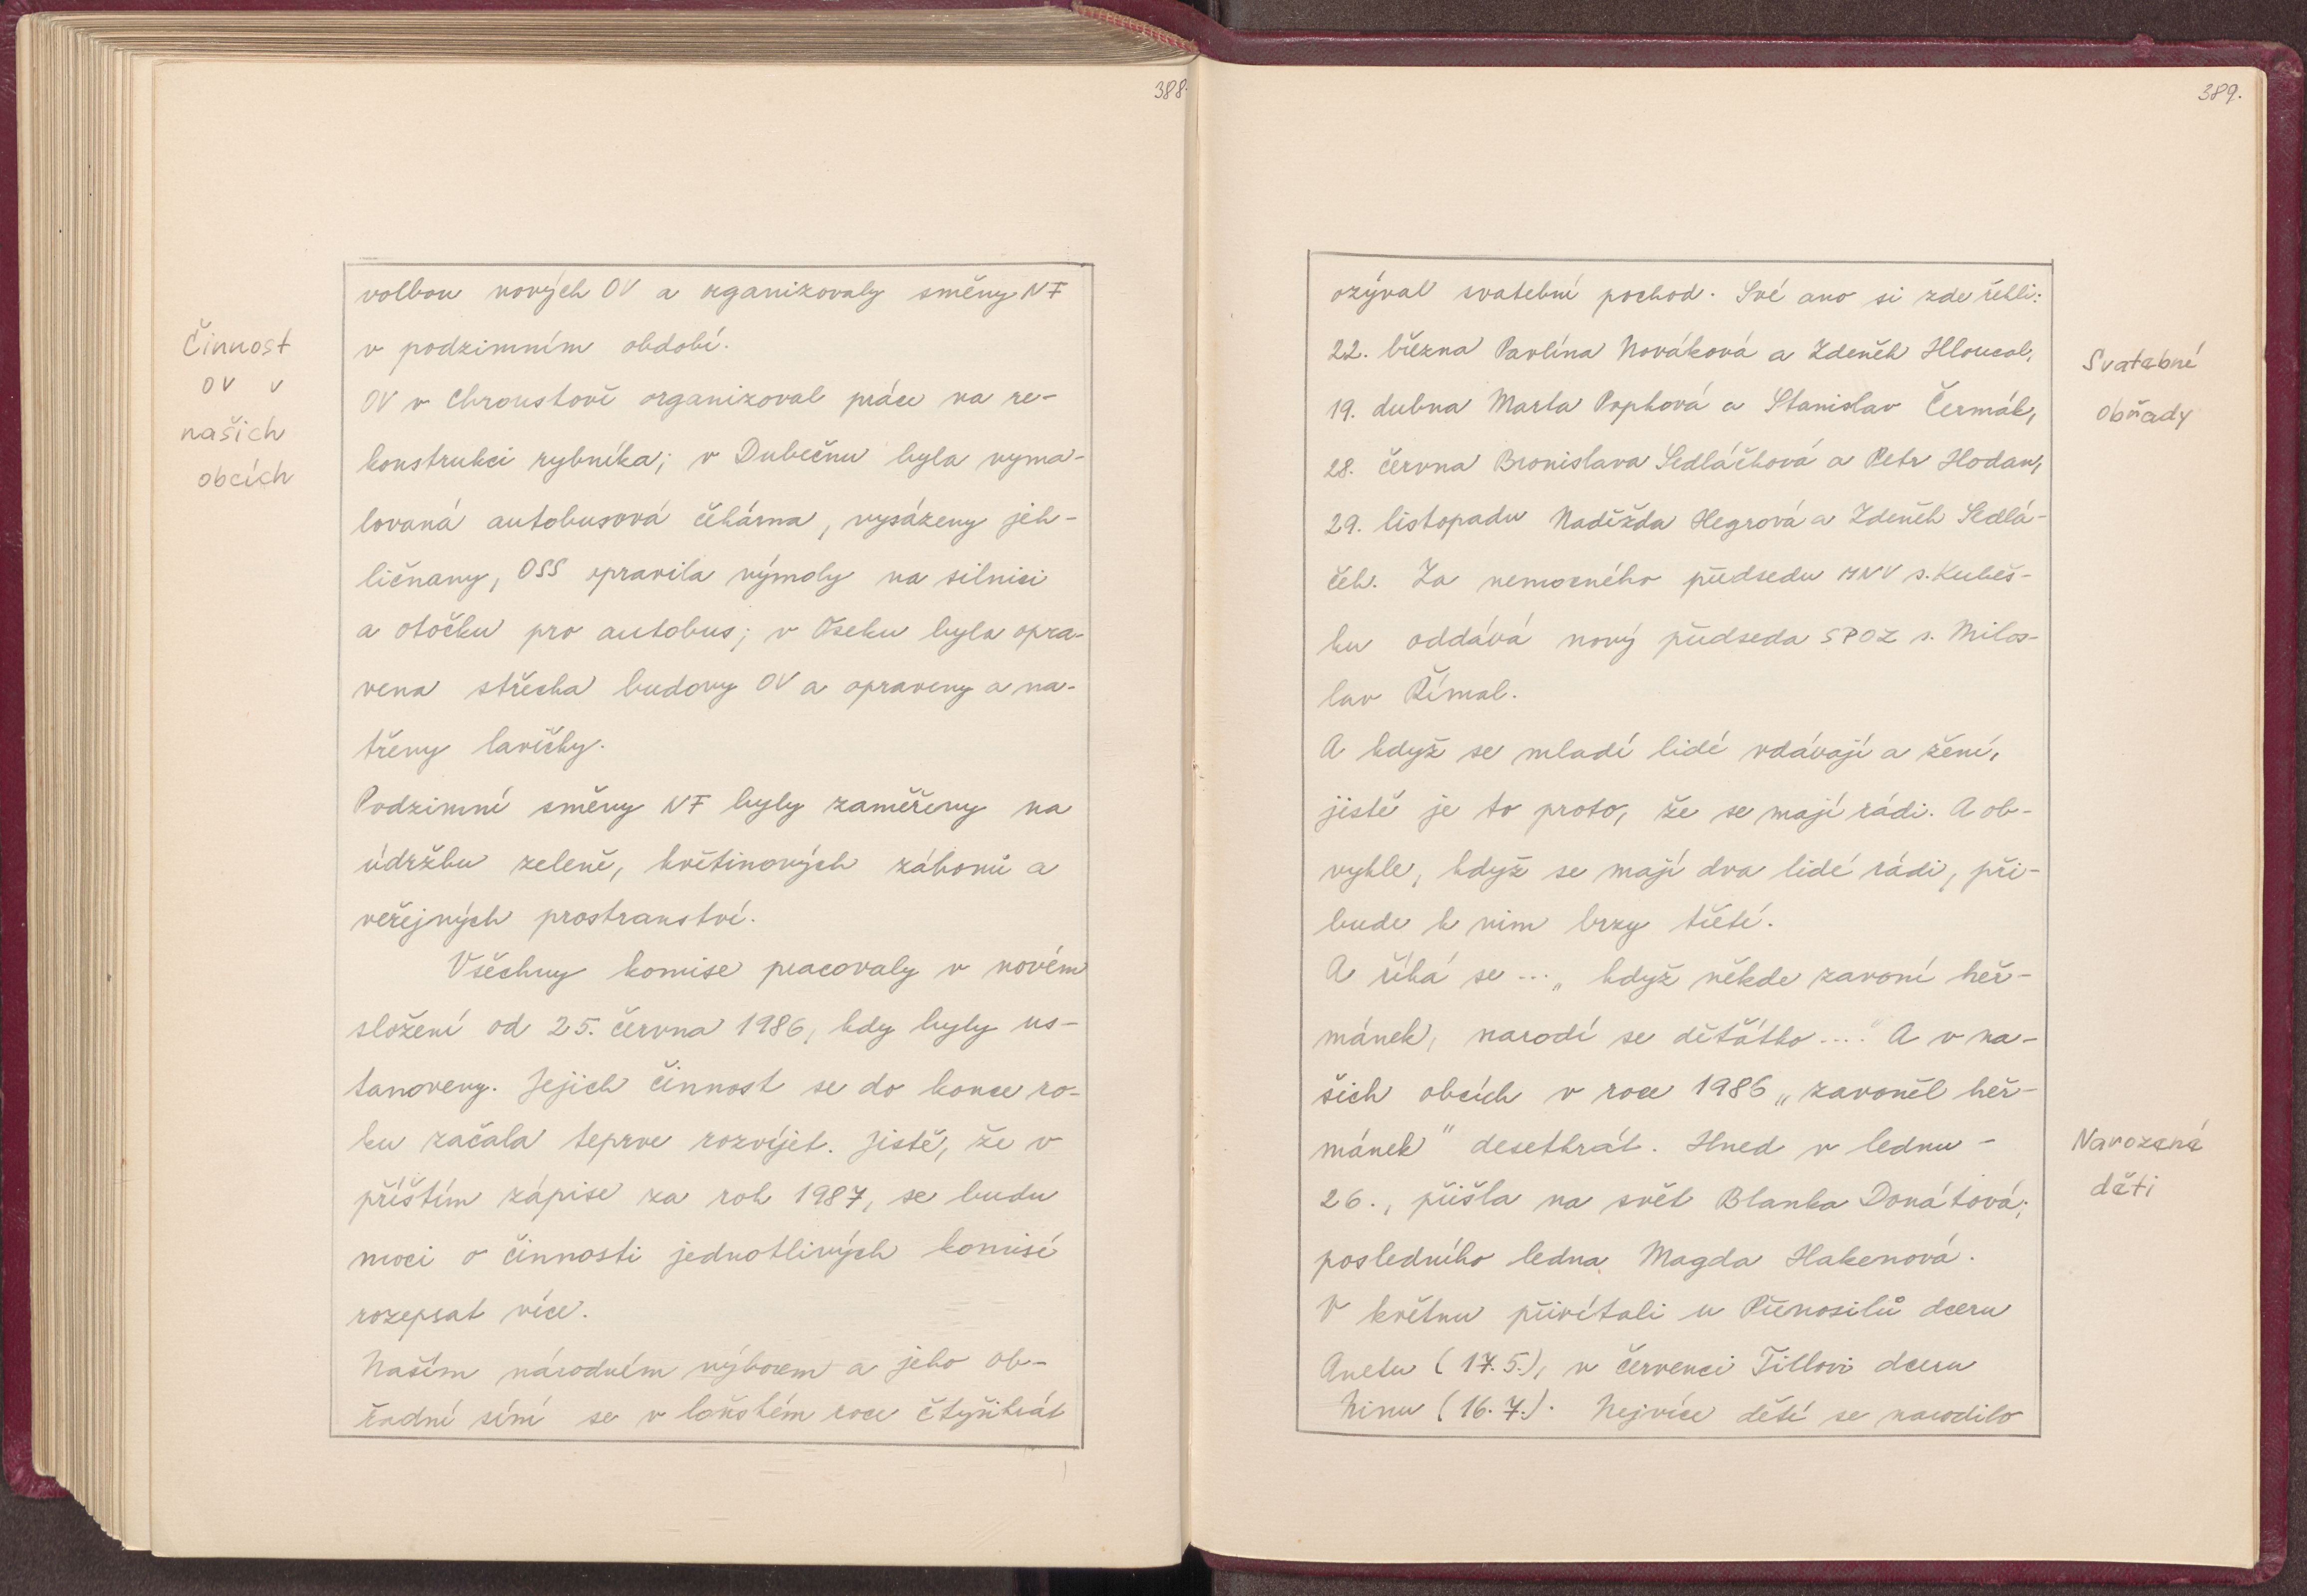 388.
Činnost
OV v
našich
obcích
volbou nových OV a organizovaly směny NF
v podzimním období.
OV v Chroustově organizoval práce na re-
konstrukci rybníka; v Dubečnu byla vyma-
lovaná autobusová čekárna, vysázeny jeh-
ličnany, OSS opravila výmoly na silnici
a otočku pro autobus; v Oseku byla opra-
vena střecha budovy OV a opraveny a na-
třeny lavičky.
Podzimní směny NF byly zaměřeny na
údržbu zeleně, květinových záhonů a
veřejných prostranství.
Všechny komise pracovaly v novém
složení od 25. června 1986, kdy byly us-
tanoveny. Jejich činnost se do konce ro-
ku začala teprve rozvíjet. Jistě, že v
příštím zápise za rok 1987, se budu
moci o činnosti jednotlivých komisí
rozepsat více.
Naším národním výborem a jeho ob-
řadní síní se v loňském roce čtyřikrát
389.
ozýval svatební pochod. Své ano si zde řekli:
22. března Pavlína Nováková a Zdeněk Hloucal,
19. dubna Marta Popková a Stanislav Čermák,
28. června Bronislava Sedláčková a Petr Hodan,
29. listopadu Naděžda Hegrová a Zdeněk Sedlá-
ček. Za nemocného předsedu MNV s. Kubeš-
ku oddává nový předseda SPOZ s. Milos-
lav Římal.
A když se mladí lidé vdávají a žení,
jistě je to proto, že se mají rádi. A ob-
vykle, když se mají dva lidé rádi, při-
bude k nim brzy třetí.
A říká se ... „když někde zavoní heř-
mánek, narodí se děťátko ...." A v na-
šich obcích v roce 1986 „zavoněl heř-
mánek" desetkrát. Hned v lednu -
26., přišla na svět Blanka Donátová;
posledního ledna Magda Hakenová.
V květnu přivítali u Přenosilů dceru
Anetu (17.5.), v červenci Tillovi dceru
Ninu (16.7.). Nejvíce dětí se narodilo
Svatební
obřady
Narozené
děti